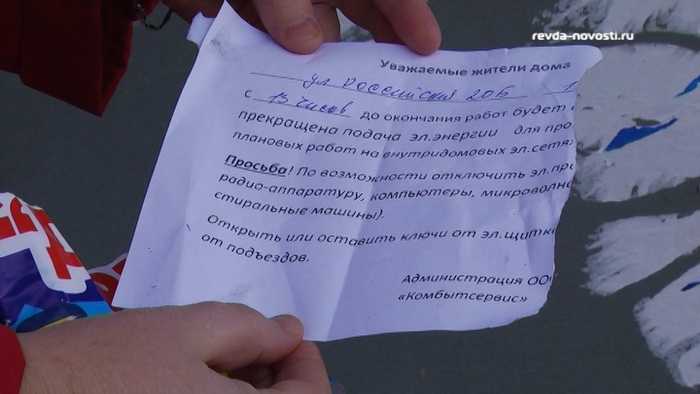 revda-novosti.ru
Уважаемые жители дома
ул Российская 20б
с 13 часов до окончания работ будет
прекращена подача эл.энергии для про
плановых работ на внутридомовых эл.сетя
Просьба! По возможности отключить эл.пр
радио-аппаратуру, компьютеры, микроволн
стиральные машины).
Открыть или оставить ключи от эл.щитк
от подъездов.
Администрация ООО
«Комбытсервис»